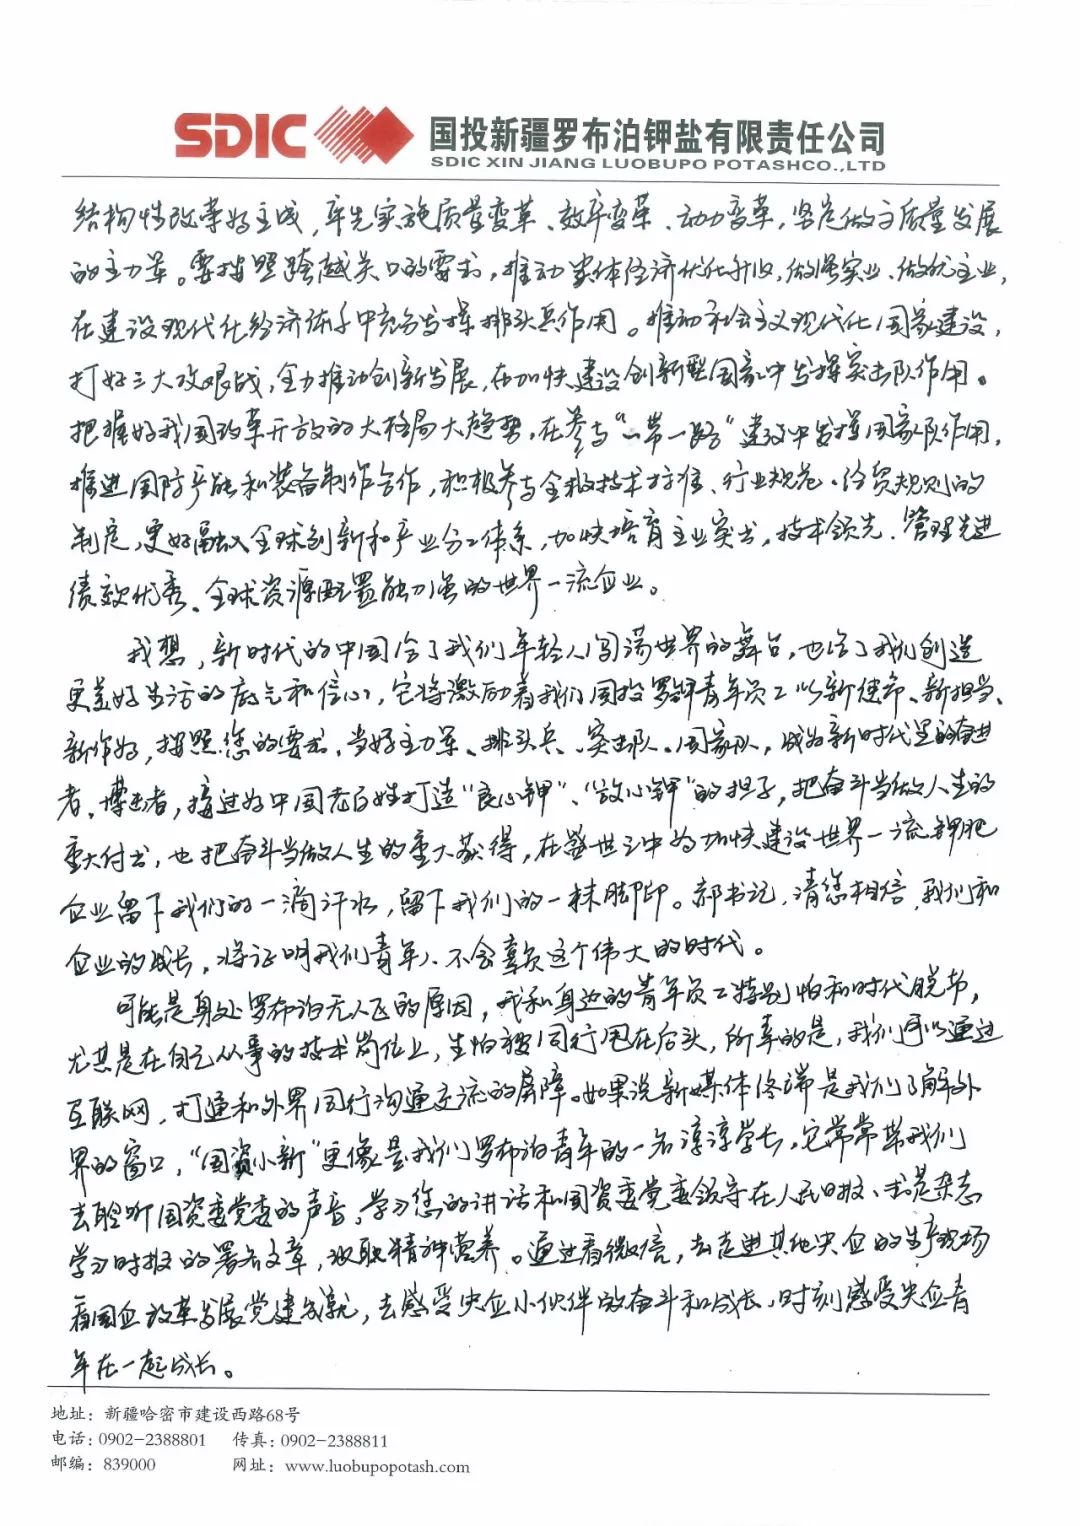 SDIC 国投新疆罗布泊钾盐有限责任公司
SDIC XIN JIANG LUOBUPO POTASHCO.,LTD
结构性改革好主战,率先实施质量变革、效率变革、动力变革,坚定做高质量发展
的主力军。要按照跨越关口的要求,推动实体经济优化升级,做强实业、做优主业,
在建设现代化经济体系中充分发挥排头兵作用。推动社会主义现代化国家建设,
打好三大攻艰战,全力推动创新发展,在加快建设创新型国家中发挥突击队作用。
把握好我国改革开放的大格局大趋势,在参与“一带一路”建设中发挥国家队作用,
推进国防产能和装备制作合作,积极参与全球技术标准、行业规范、经贸规则的
制定,更好融入全球创新和产业分工体系,加快培育主业突出,技术领先、管理先进
绩效优秀、全球资源配置能力强的世界一流企业。
我想,新时代的中国给了我们年轻人闯荡世界的舞台,也给了我们创造
更美好生活的底气和信心,它将激励着我们国投罗钾青年员工以新使命、新担当、
新作为,按照您的要求,当好主力军、排头兵、突击队、国家队,成为新时代里的奋进
者,搏击者,接过好中国老百姓打造“良心钾”、“放心钾”的担子,把奋斗当做人生的
重大付出,也把奋斗当做人生的重大获得,在盛世之中为加快建设世界一流钾肥
企业留下我们的一滴汗水,留下我们的一抹脚印。郝书记,请您相信,我们和
企业的成长,将证明我们青年人不会辜负这个伟大的时代。
可能是身处罗布泊无人区的原因,我和身边的青年员工特别怕和时代脱节,
尤其是在自己从事的技术岗位上,生怕被同行甩在后头,所幸的是,我们可以通过
互联网,打通和外界同行沟通交流的屏障。如果说新媒体终端是我们了解外
界的窗口,“国资小新”更像是我们罗布泊青年的一名谆谆学长,它常常带我们
去聆听国资委党委的声音,学习您的讲话和国资委党委领导在人民日报、求是杂志
学习时报的署名文章,汲取精神营养。通过看微信,去走进其他央企的生产现场
看国企改革发展党建成就,去感受央企小伙伴的奋斗和成长,时刻感受央企青
年在一起成长。
地址:新疆哈密市建设西路68号
电话:0902-2388801 传真:0902-2388811
邮编:839000 网址:www.luobupopotash.com